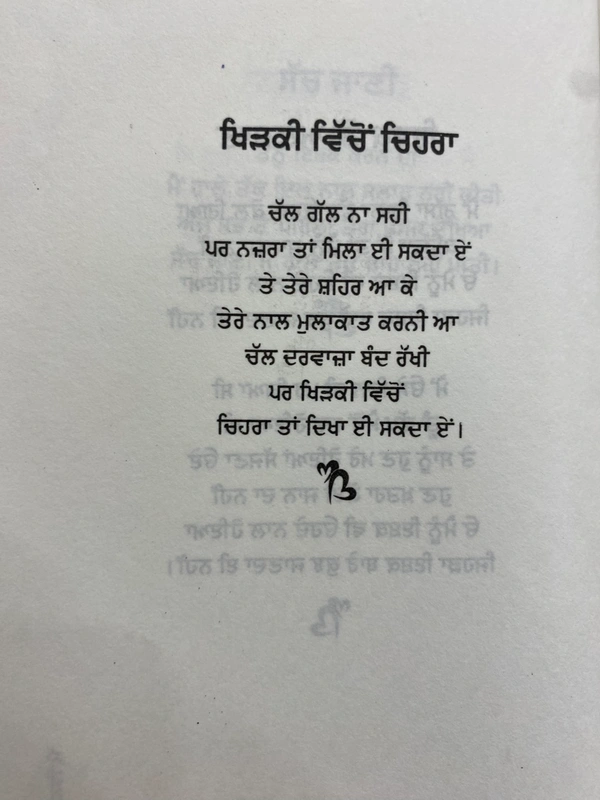 ਖਿੜਕੀ ਵਿੱਚੋਂ ਚਿਹਰਾ
ਚੱਲ ਗੱਲ ਨਾ ਸਹੀ
ਪਰ ਨਜ਼ਰਾ ਤਾਂ ਮਿਲਾ ਈ ਸਕਦਾ ਏਂ
ਤੇ ਤੇਰੇ ਸ਼ਹਿਰ ਆ ਕੇ
ਤੇਰੇ ਨਾਲ ਮੁਲਾਕਾਤ ਕਰਨੀ ਆ
ਚੱਲ ਦਰਵਾਜ਼ਾ ਬੰਦ ਰੱਖੀ
ਪਰ ਖਿੜਕੀ ਵਿੱਚੋਂ
ਚਿਹਰਾ ਤਾਂ ਦਿਖਾ ਈ ਸਕਦਾ ਏਂ।